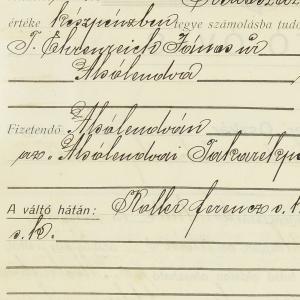 értéke készpénzben tegye számolásba tudó
T. Ehrenreich János úr
Alsólendva
Fizetendő Alsólendván
az Alsólendvai Takarékp
A váltó hátán: Koller ferencz s. k.
s. k.